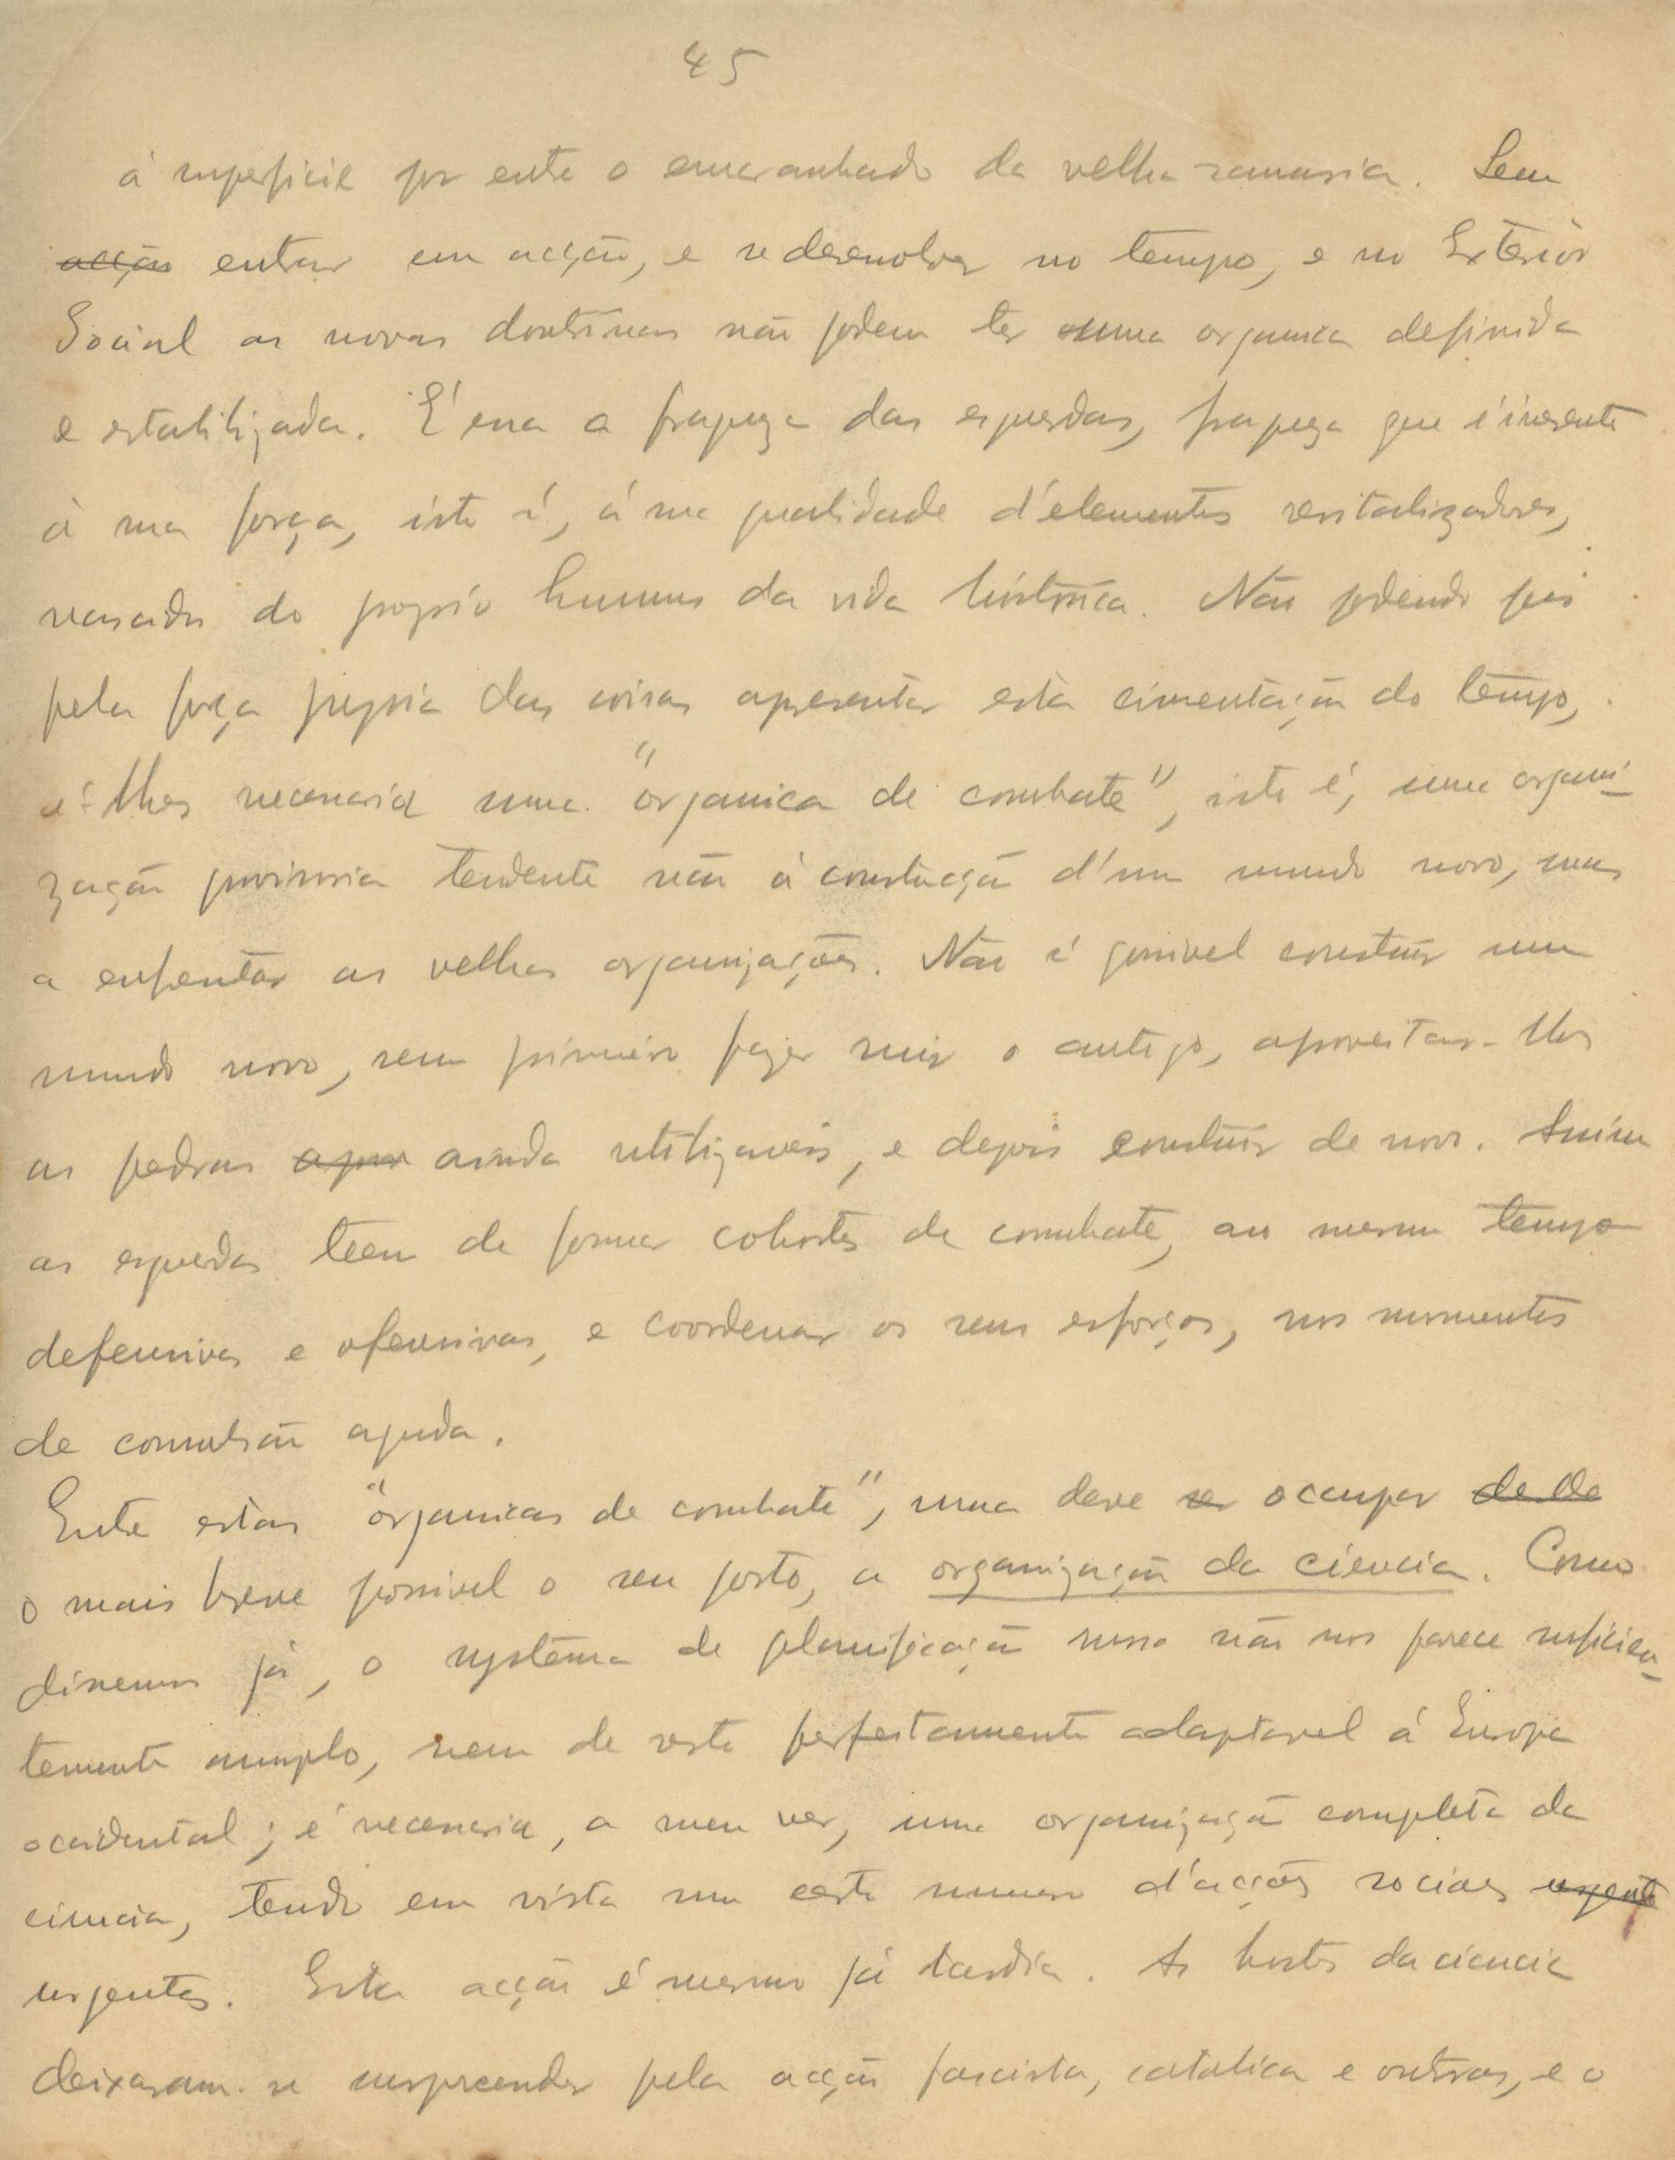 45
á superficie por entre o emaranhado da velha ramaria. Sem
acção entrar em acção, e se desenvolver no tempo, e no Exterior
Social as novas doutrinas não podem ter uma organica definida
e estabilizada. É essa a fraqueza das esquerdas, fraqueza que é inerente
á sua força, isto é, á sua qualidade d'elementos revitalizadores,
vasados do proprio humus da vida histórica. Não podendo pois
pela força propria das coisas apresentar esta cimentação do tempo,
é-lhes necessaria uma "organica de combate", isto é, uma organi-
zação provisoria tendente não á construcção d'um mundo novo, mas
a enfrentar as velhas organizações. Não é possivel construir um
mundo novo, sem primeiro fazer ruir o antigo, aproveitar-lhes
as pedras apro ainda utilizaveis, e depois construir de novo. Assim
as esquerdas teem de formar cohortes de combate, ao mesmo tempo
defensivas e ofensivas, e coordenar os seus esforços, nos momentos
de convulsão aguda.
Entre estas "organicas de combate", uma deve ser ocupar desde
o mais breve possivel o seu posto, a organização da ciencia. Como
dissemos já, o systema de planificação russo não nos parece suficien-
temente amplo, nem de resto perfeitamente adaptavel á Europa
ocidental; é necessaria, a meu ver, uma organização completa da
ciencia, tendo em vista um certo numero d'acções sociaes urgente
urgentes. Esta acção é mesmo já tardia. As hostes da ciencia
deixaram-se surpreender pela acção fascista, catolica e outras, e o